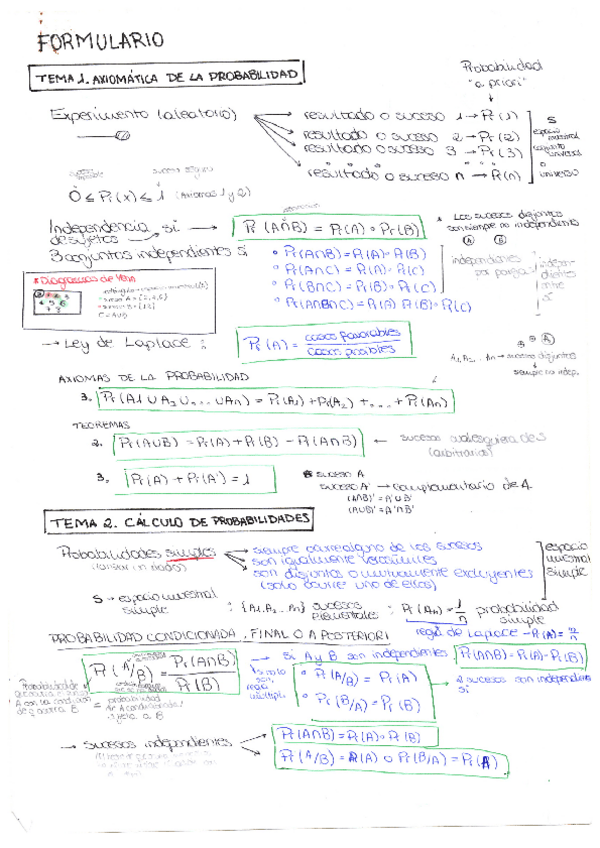 FORMULARIO
TEMA 1. AXIOMÁTICA DE LA PROBABILIDAD
Probabilidad
"a priori"
Experimento (aleatorio)
resultado o suceso 1 → Pr(1)
resultado o suceso 2 → Pr(2)
resultado o suceso 3 → Pr(3)
resultado o suceso n → Pr(n)
S
espacio
muestral
conjunto
universo
o
universo
suceso seguro
0 ≤ Pr(x) ≤ 1 (Axiomas 1 y 2)
Independencia si
de sujetos
Pr(A∩B) = Pr(A) · Pr(B)
* Los sucesos disjuntos
son siempre no independientes
A B
3 conjuntos independientes si
Pr(A∩B) = Pr(A) · Pr(B)
Pr(A∩C) = Pr(A) · Pr(C)
Pr(B∩C) = Pr(B) · Pr(C)
Pr(A∩B∩C) = Pr(A) Pr(B) · Pr(C)
independientes
por parejas
* Diagramas de Venn
C = A∪B
→ Ley de Laplace :
Pr(A) = casos favorables / casos posibles
A1, A2 .. An → sucesos disjuntos
siempre no indep.
AXIOMAS DE LA PROBABILIDAD
3. Pr(A1 ∪ A2 ∪ ... ∪ An) = Pr(A1) + Pr(A2) + ... + Pr(An)
TEOREMAS
2. Pr(A∪B) = Pr(A) + Pr(B) - Pr(A∩B) ← sucesos cualesquiera de S
(arbitrarios)
3. Pr(A) + Pr(A') = 1
suceso A
suceso A' → complementario de A
(A∩B)' = A'∪B'
(A∪B)' = A'∩B'
TEMA 2. CÁLCULO DE PROBABILIDADES
Probabilidades simples
(lanzar un dado)
siempre ocurre alguno de los sucesos
son igualmente verosímiles
son disjuntos o mutuamente excluyentes
(solo ocurre uno de ellos)
espacio
muestral
simple
S → espacio muestral
simple
: {A1, A2 .. An} sucesos
elementales
: Pr(An) = 1/n probabilidad
simple
regla de Laplace → Pr(A) =
PROBABILIDAD CONDICIONADA, FINAL O A POSTERIORI
Pr(A/B) = Pr(A∩B) / Pr(B)
si A y B son independientes
Pr(A∩B) = Pr(A) · Pr(B)
Pr(A/B) = Pr(A)
Pr(B/A) = Pr(B)
2 sucesos son independientes
si
Probabilidad de
= probabilidad
de A condicionada
sujeta a B
→ sucesos independientes
Pr(A∩B) = Pr(A) · Pr(B)
Pr(A/B) = Pr(A) o Pr(B/A) = Pr(A)